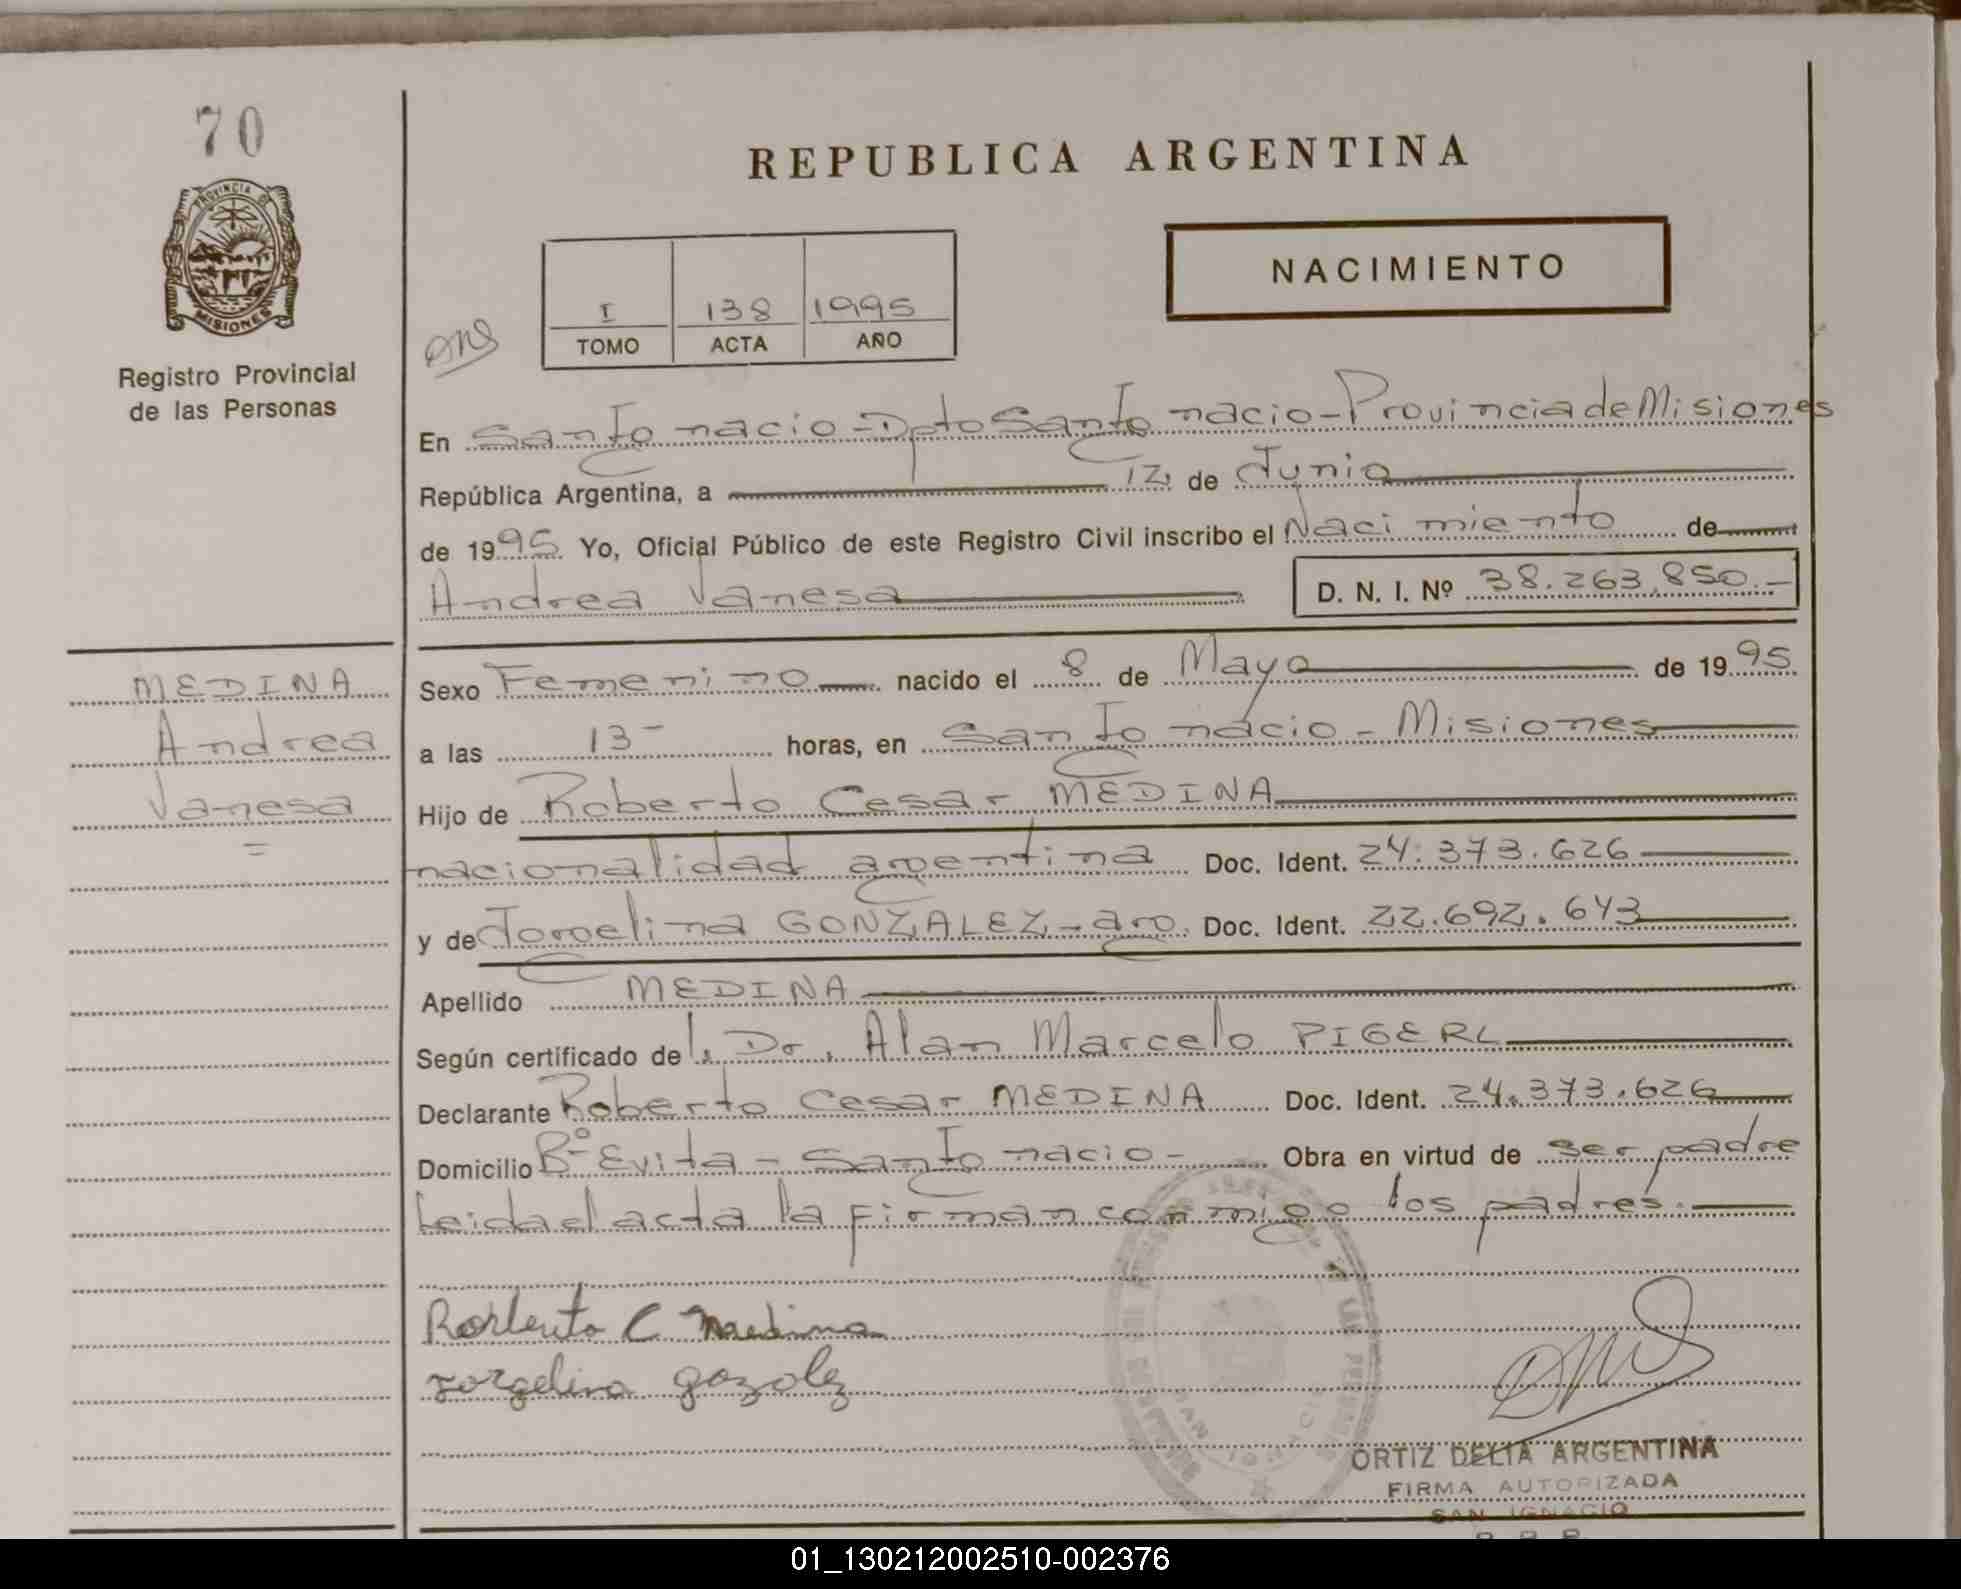 70
PROVINCIA DE
MISIONES
Registro Provincial
de las Personas
REPUBLICA ARGENTINA
NACIMIENTO
I 138 1995
TOMO ACTA AÑO
En San Ignacio - Dpto San Ignacio - Provincia de Misiones
República Argentina, a 12 de Junio
de 1995 Yo, Oficial Público de este Registro Civil inscribo el Nacimiento de
Andrea Vanesa D. N. I. Nº 38.263.850.-
MEDINA
Andrea
Vanesa
=
Sexo Femenino nacido el 8 de Mayo de 1995
a las 13- horas, en San Ignacio - Misiones
Hijo de Roberto Cesar MEDINA
nacionalidad argentina Doc. Ident. 24.373.626
y de Jorgelina GONZALEZ - arg. Doc. Ident. 22.692.643
Apellido MEDINA
Según certificado del Dr. Alan Marcelo PIGERL
Declarante Roberto Cesar MEDINA Doc. Ident. 24.373.626
Domicilio Bº Evita - San Ignacio - Obra en virtud de ser padre
Leida el acta la firman conmigo los padres.
Rorberto C Medina
Jorgelina gozolez
ORTIZ DELIA ARGENTINA
FIRMA AUTORIZADA
SAN IGNACIO
01_130212002510-002376